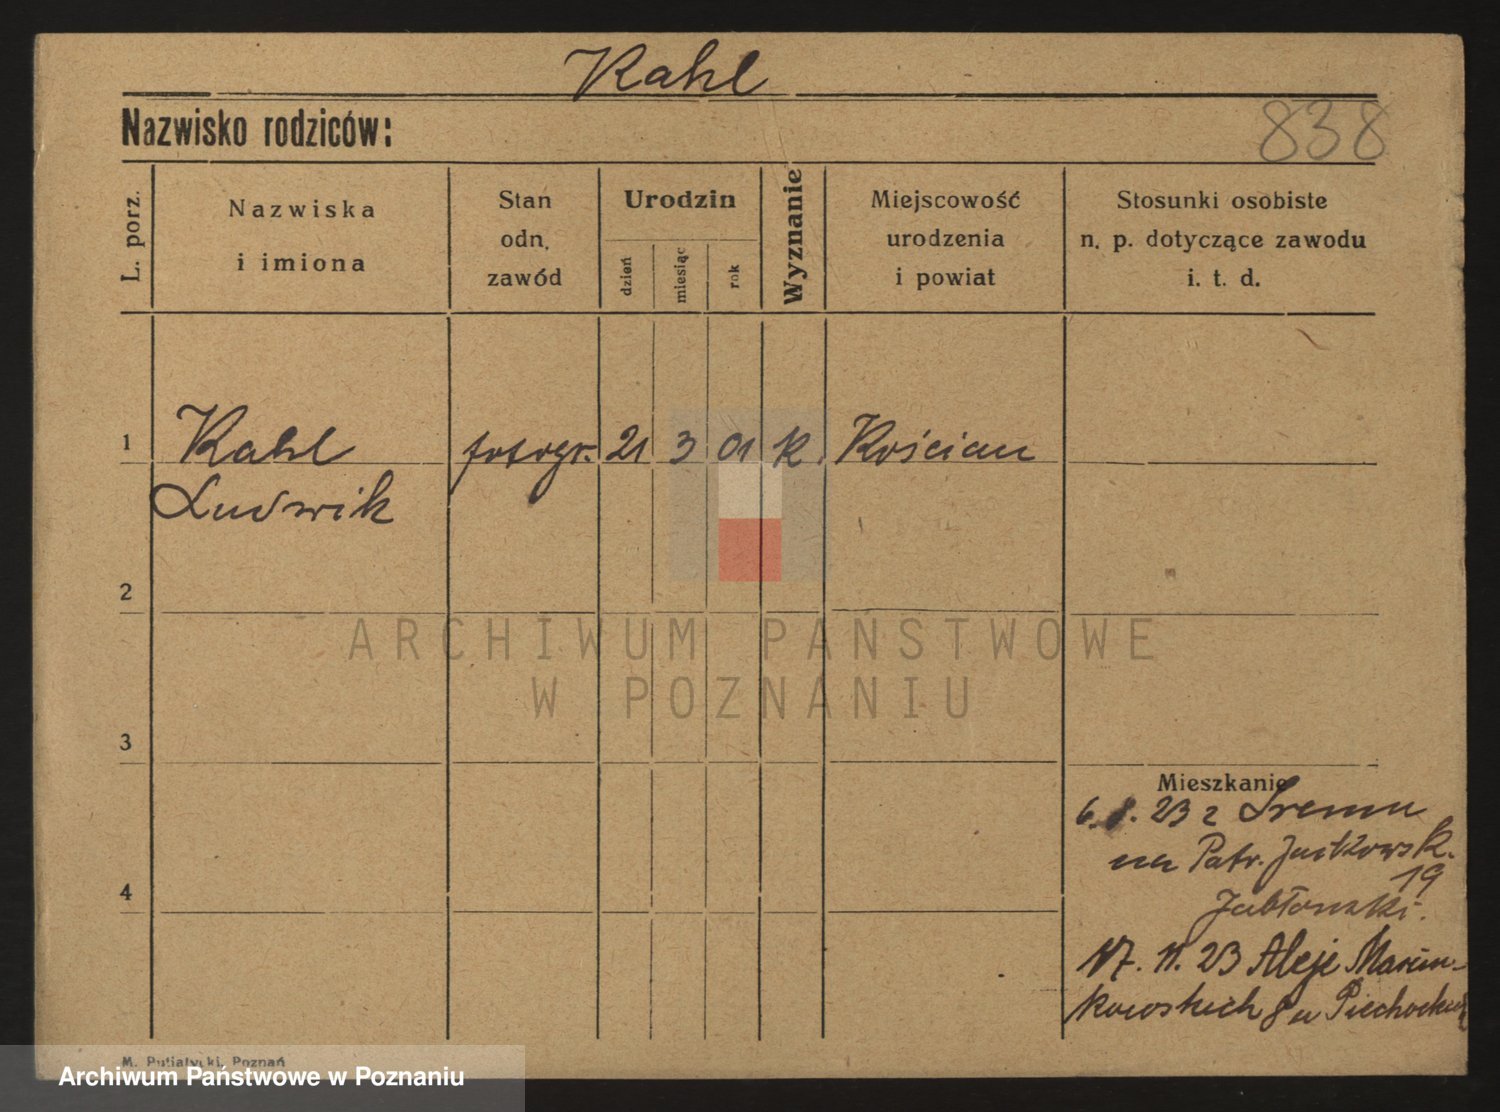 Kahl
838
Nazwisko rodziców:
L. porz.
Nazwiska
i imiona
Stan
odn.
zawód
Urodzin
dzień
miesiąc
rok
Wyznanie
Miejscowość
urodzenia
i powiat
Stosunki osobiste
n. p. dotyczące zawodu
i. t. d.
1 Kahl fotogr. 21 3 01 k. Kościan
Ludwik
2
ARCHIWUM PAŃSTWOWE
W POZNANIU
3
Mieszkanie
6. 8. 23 z Śremu
na Patr. Jackowsk.
19
Jabłoński.
4
17. 11. 23 Aleje Marcin-
kowskich 8 u
M. Putiatycki, Poznań
Archiwum Państwowe w Poznaniu